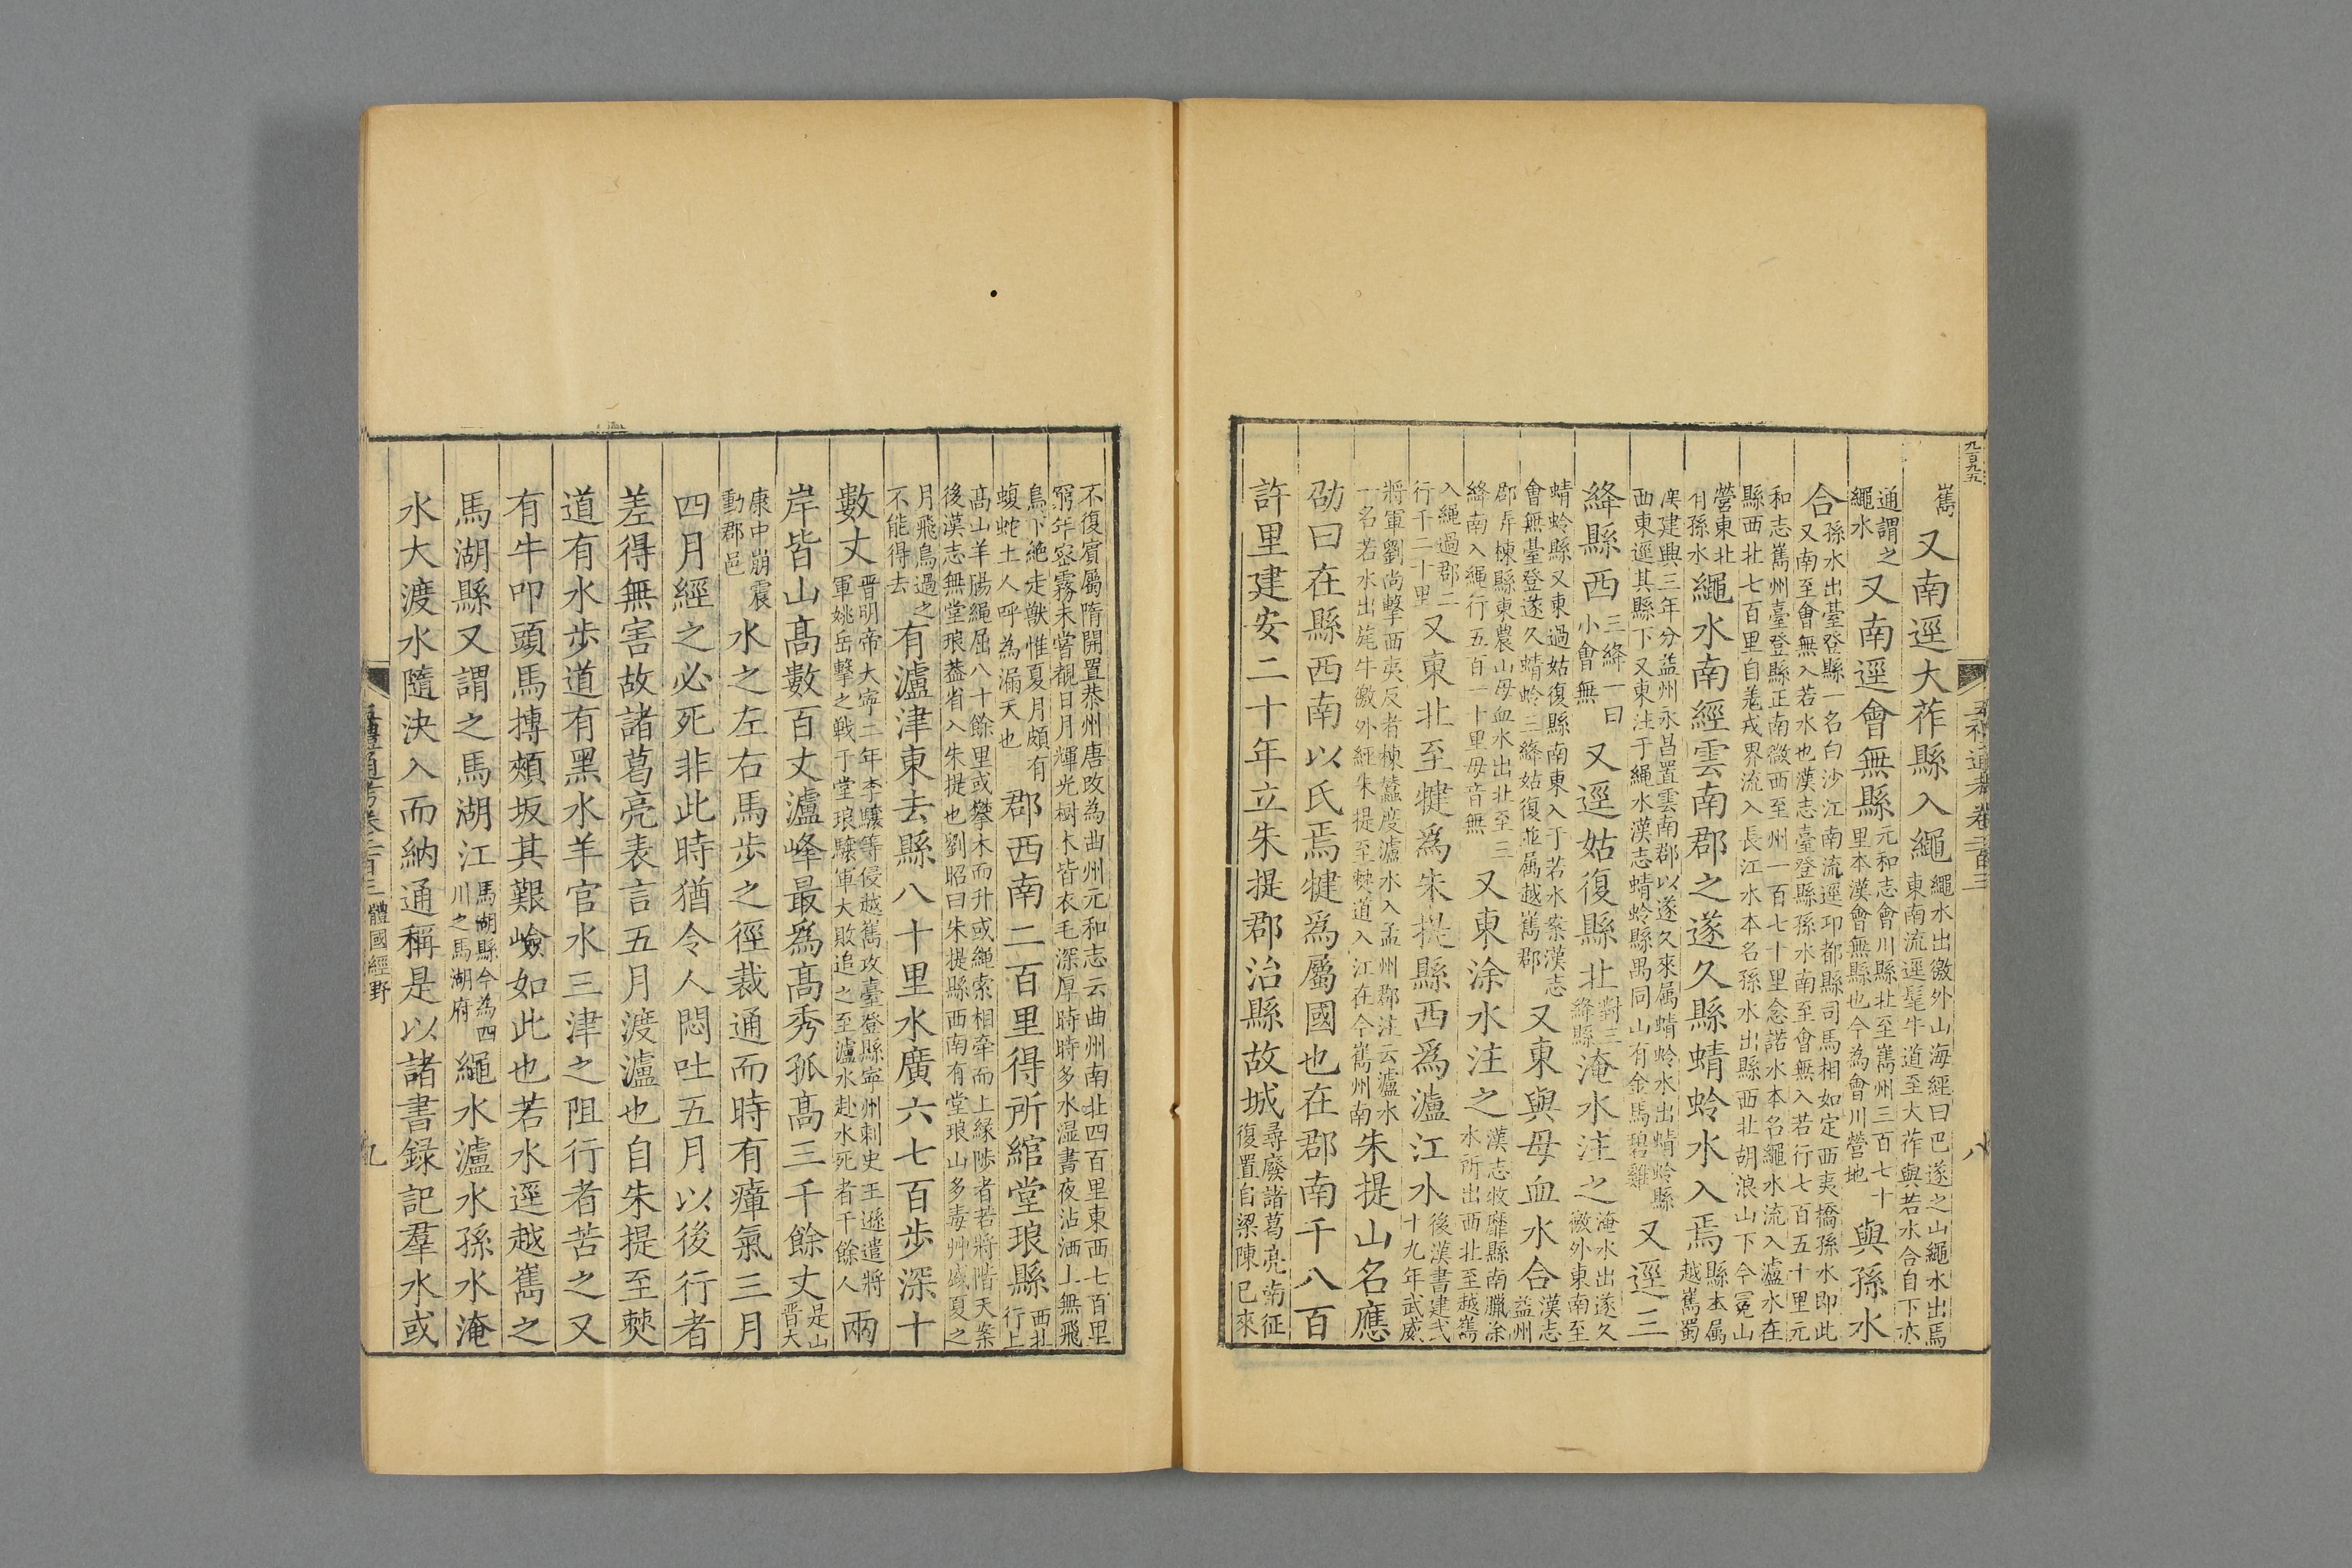 九百九五
五禮通考卷二百三
八
巂
又南逕大莋縣入繩
繩水出徼外山海經曰巴遂之山繩水出焉
東南流逕髦牛道至大莋與若水合自下亦
通謂之
繩水
又南逕會無縣
元和志會川縣北至巂州三百七十
里本漢會無縣也今為會川營地
與孫水
合
孫水出臺登縣一名白沙江南流逕邛都縣司馬相如定西夷橋孫水即此
又南至會無入若水也漢志臺登縣孫水南至會無入若行七百五十里元
和志巂州臺登縣正南微西至州一百七十里念諾水本名繩水流入瀘水在
縣西北七百里自羗戎界流入長江水本名孫水出縣西北胡浪山下今冕山
營東北
有孫水
繩水南經雲南郡之遂久縣蜻蛉水入焉
縣本属
越巂蜀
漢建興三年分益州永昌置雲南郡以遂久來属蜻蛉水出蜻蛉縣
西東逕其縣下又東注于繩水漢志蜻蛉縣禺同山有金馬碧雞
又逕三
絳縣西
三絳一曰
小會無
又逕姑復縣北
對三
絳縣
淹水注之
淹水出遂久
徼外東南至
蜻蛉縣又東過姑復縣南東入于若水案漢志
會無臺登遂久蜻蛉三絳姑復並属越巂郡
又東與母血水合
漢志
益州
郡弄棟縣東農山母血水出北至三
絳南入繩行五百一十里母音無
又東涂水注之
漢志收靡縣南臘涂
水所出西北至越巂
入繩過郡二
行千二十里
又東北至犍爲朱提縣西爲瀘江水
後漢書建武
十九年武威
將軍劉尚擊西夷反者棟蠶度瀘水入益州郡注云瀘水
一名若水出旄牛徼外經朱提至僰道入江在今巂州南
朱提山名應
劭曰在縣西南以氏焉犍爲屬國也在郡南千八百
許里建安二十年立朱提郡治縣故城
尋廢諸葛亮南征
復置自梁陳已來
不復賓屬隋開置恭州唐改為曲州元和志云曲州南北四百里東西七百里
窮年密霧未嘗覩日月輝光樹木皆衣毛深厚時時多水濕晝夜沾洒上無飛
鳥下絶走獸惟夏月頗有
蝮蛇土人呼為漏天也
郡西南二百里得所綰堂琅縣
西北
行上
髙山羊膓繩屈八十餘里或攀木而升或繩索相牽而上緣陟者若將階天案
後漢志無堂琅葢省入朱提也劉昭曰朱提縣西南有堂琅山多毒艸盛夏之
月飛鳥過之
不能得去
有瀘津東去縣八十里水廣六七百步深十
數丈
晋明帝大寧二年李驤等侵越巂攻臺登縣寧州刺史王遜遣將
軍姚岳擊之戰于堂琅驤軍大敗追之至瀘水赴水死者千餘人
兩
岸皆山髙數百丈瀘峰最爲髙秀孤髙三千餘丈
是山
晋大
康中崩震
動郡邑
水之左右馬歩之徑裁通而時有瘴氣三月
四月經之必死非此時猶令人悶吐五月以後行者
差得無害故諸葛亮表言五月渡瀘也自朱提至僰
道有水歩道有黑水羊官水三津之阻行者苦之又
有牛叩頭馬搏頰坂其艱嶮如此也若水逕越巂之
馬湖縣又謂之馬湖江
馬湖縣今為四
川之馬湖府
繩水瀘水孫水淹
水大渡水隨決入而納通稱是以諸書録記羣水或
五禮通考卷二百三 體國經野
九